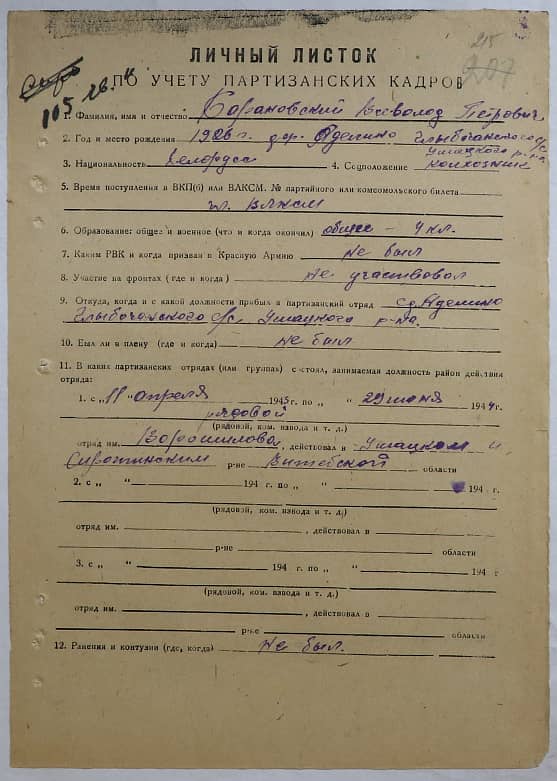 215
207
ЛИЧНЫЙ ЛИСТОК
ПО УЧЕТУ ПАРТИЗАНСКИХ КАДРОВ
1. Фамилия, имя и отчество Барановский Всеволод Петрович
2. Год и место рождения 1926 г. дер. Аделино Глыбочанского с/с
Ушацкого р-на
3. Национальность белорусс 4. Соцположение колхозник
5. Время поступления в ВКП(б) или ВЛКСМ. № партийного или комсомольского билета
чл. ВЛКСМ
6. Образование: общее и военное (что и когда окончил) общее - 4 кл.
7. Каким РВК и когда призван в Красную Армию не был
8. Участие на фронтах (где и когда) не участвовал
9. Откуда, когда и с какой должности прибыл в партизанский отряд с д. Аделино
Глыбочанского с/с Ушацкого р-на.
10. Был ли в плену (где и когда) не был
11. В каких партизанских отрядах (или группах) состоял, занимаемая должность район действия
отряда:
1. с „11" апреля 1943 г. по „ " 29 июня 1944 г.
рядовой
(рядовой, ком. взвода и т. д.)
отряд им. Ворошилова, действовал в Ушацком и
Сиротинским р-не Витебской области
2. с „ " 194 г. по „ " 194 г.
(рядовой, ком. взвода и т. д.)
отряд им. , действовал в
р-не области
3. с „ " 194 г. по „ " 194 г
(рядовой, ком. взвода и т. д.)
отряд им. , действовал в
р-не области
12. Ранения и контузии (где, когда) не был.